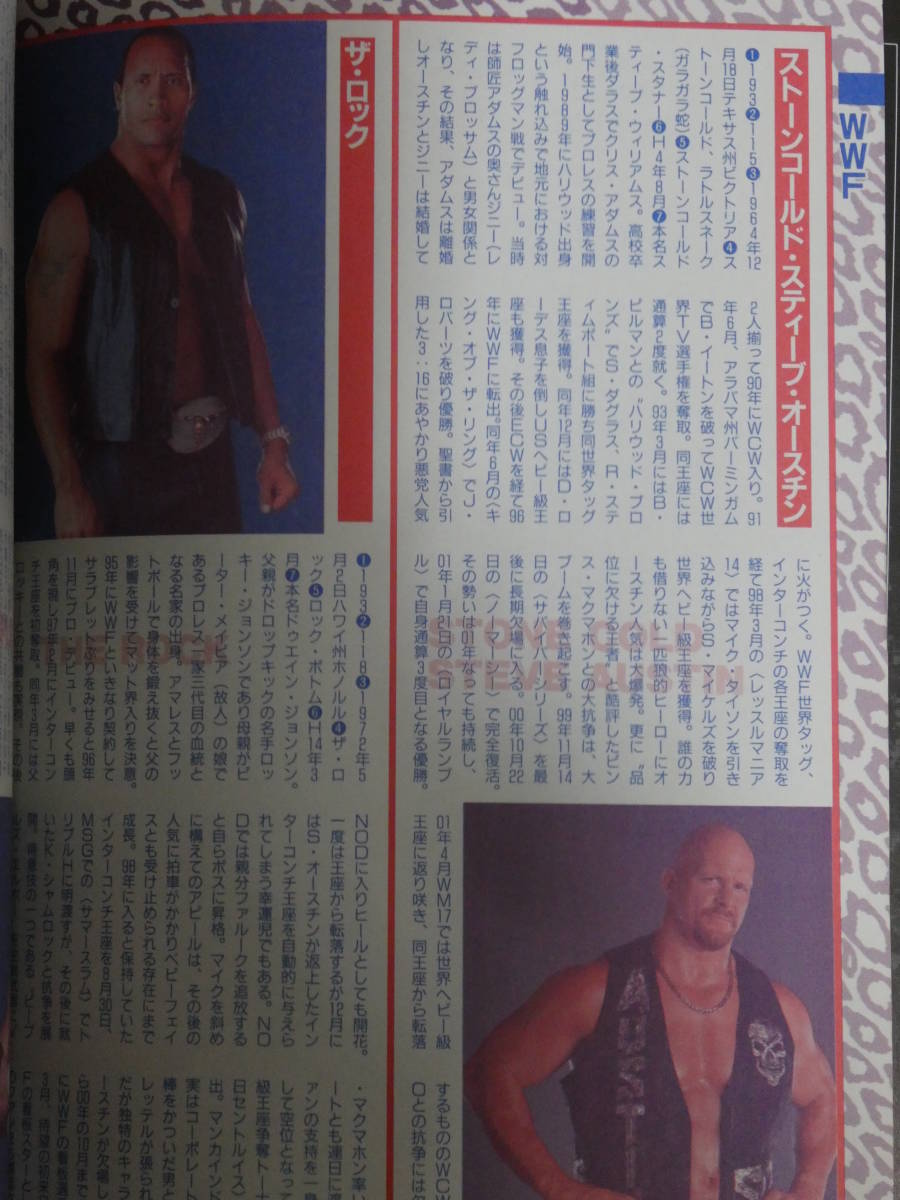 WWF
ストーンコールド・スティーブ・オースチン
❶193❷115❸1964年12
月18日テキサス州ビクトリア❹ス
トーンコールド、ラトルスネーク
(ガラガラ蛇)❺ストーンコールド
・スタナー❻H4年8月❼本名ス
ティーブ・ウィリアムス。高校卒
業後ダラスでクリス・アダムスの
門下生としてプロレスの練習を開
始。1989年にハリウッド出身
という触れ込みで地元における対
フロッグマン戦でデビュー。当時
は師匠アダムスの奥さんジニー(レ
ディ・ブロッサム)と男女関係と
なり、その結果、アダムスは離婚
しオースチンとジニーは結婚して
2人揃って90年にWCW入り。91
年6月、アラバマ州バーミンガム
でB・イートンを破ってWCW世
界TV選手権を奪取。同王座には
通算2度就く。93年3月にはB・
ピルマンとの“ハリウッド・ブロ
ンズ”でS・ダグラス、R・ステ
ィムボート組に勝ち同世界タッグ
王座を獲得。同年12月にはD・ロ
ーデス息子を倒しUSヘビー級王
座も獲得。その後ECWを経て96
年にWWFに転出。同年6月の〈キ
ング・オブ・ザ・リング〉でJ・
ロバーツを破り優勝。聖書から引
用した3:16にあやかり悪党人気
に火がつく。WWF世界タッグ、
インターコンチの各王座の奪取を
経て98年3月の〈レッスルマニア
14〉ではマイク・タイソンを引き
込みながらS・マイケルズを破り
世界ヘビー級王座を獲得。誰の力
も借りない一匹狼的ヒーローにオ
ースチン人気は大爆発。更に“品
位に欠ける王者”と酷評したビン
ス・マクマホンとの大抗争は、大
ブームを巻き起こす。99年11月14
日の〈サバイバーシリーズ〉を最
後に長期欠場に入る。00年10月22
日の〈ノー・マーシー〉で完全復活。
その勢いは01年なっても持続し、
01年1月21日の〈ロイヤルランブ
ル〉で自身通算3度目となる優勝。
STONE COLD
STEVE AUSTIN
01年4月WM17では世界ヘビー級
王座に返り咲き、同王座から転落
するもののWCW
Oとの抗争には欠
AUSTI
ザ・ロック
❶193❷118❸1972年5
月2日ハワイ州ホノルル❹ザ・ロ
ック❺ロック・ボトム❻H14年3
月❼本名ドゥエイン・ジョンソン。
父親がドロップキックの名手ロッ
キー・ジョンソンであり母親がピ
ーター・メイビア(故人)の娘で
あるプロレス一家三代目の血統と
なる名家の出身。アマレスとフッ
トボールで身体を鍛え抜くと父の
影響を受けてマット界入りを決意。
95年にWWFといきなり契約して
サラブレットぶりをみせると96年
11月にプロデビュー。早くも頭
角を現し97年2月にインターコン
チ王座を初奪取。同年3月には父
THE ROCK
NODに入りヒールとしても開花。
一度は王座から転落するが12月に
はS・オースチンが返上したイン
ターコンチ王座を自動的に与えら
れてしまう幸運児でもある。NO
Dでは親分ファルークを追放する
と自らボスに昇格。マイクを斜め
に構えてのアピールは、その後の
人気に拍車がかかりベビーフェイ
スとも受け止められる存在にまで
成長。98年に入ると保持していた
インターコンチ王座を8月30日、
MSGでの〈サマースラム〉でト
リプルHに明渡すが、その後に就
いたK・シャムロックと抗争を展
開。得意技の一つである〝ピープ
・マクマホン率い
ートとも連日に渡
ァンの支持を一身
して空位となって
級王座争奪トーナ
日セントルイス〉
出。マンカインド
実はコーポレート
棒をかついだ男と
レッテルが張られ
だが独特のキャラ
ースチンが欠場し
ら00年の10月まで
にWWFの看板選
3月、待望の初来
Fの看板スターと